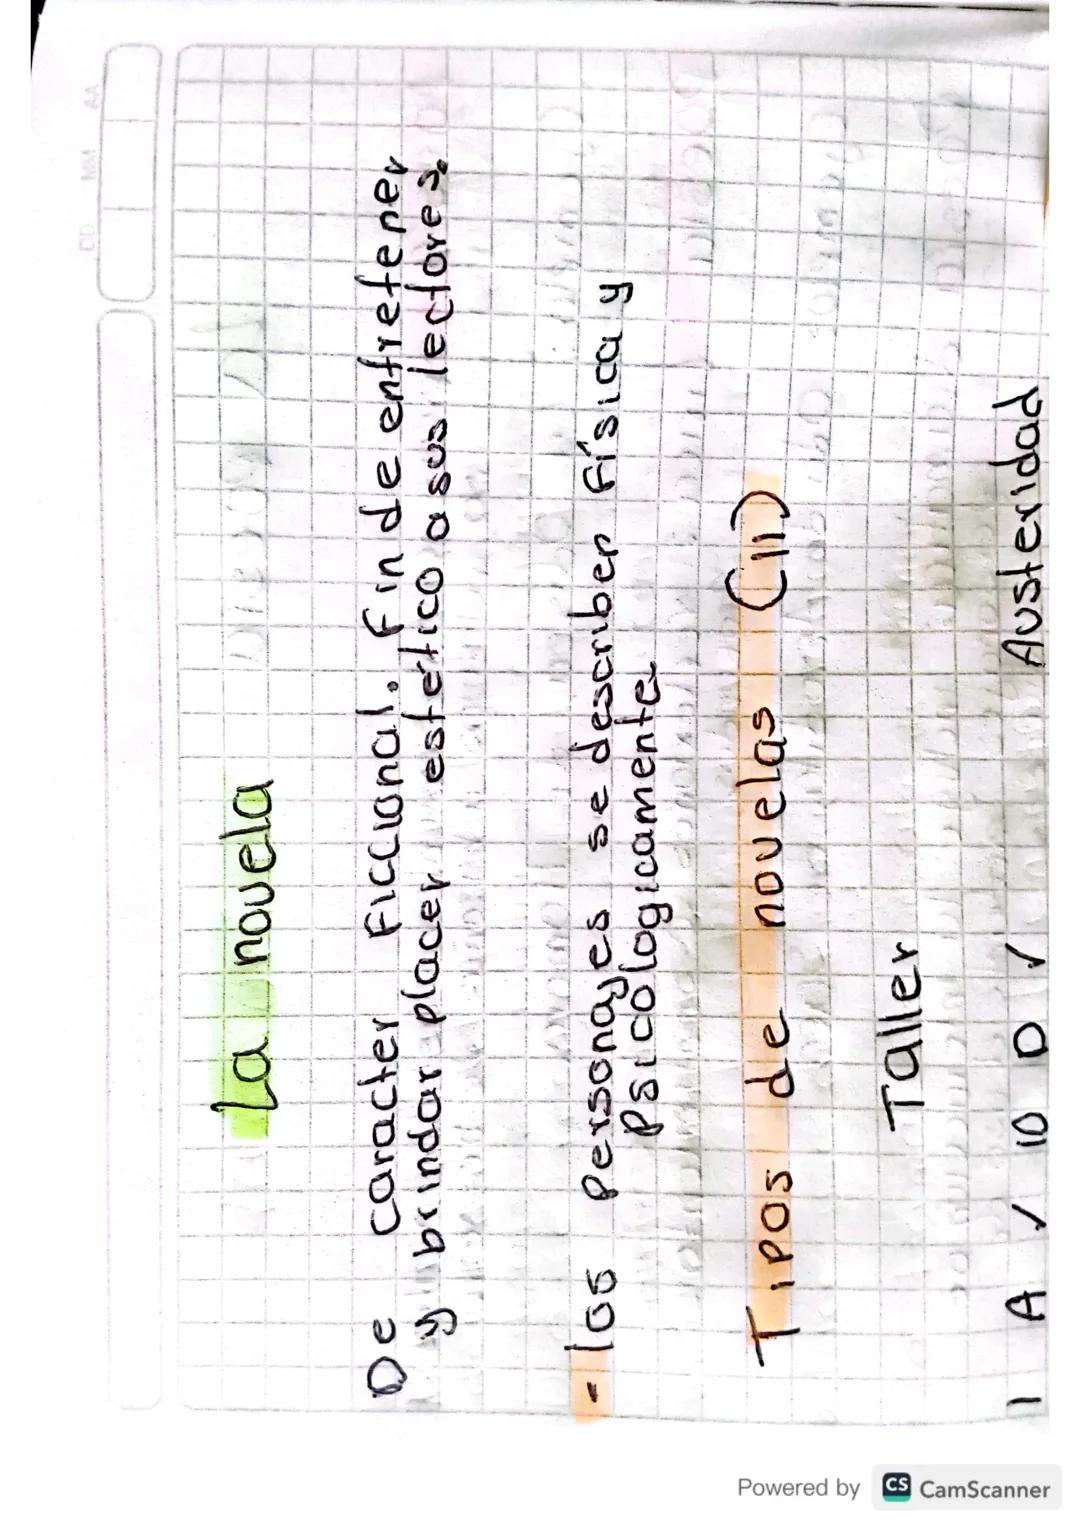 La novela
De caracter Ficcional. Fin de entretener
y brindar placer estético a sus lectores.
- los personajes se describen física y
Psicologicamente
Tipos de novelas (11)
Taller
1 A ✓ 10 D ✓ Austeridad
DD MM AA
Powered by CS CamScanner